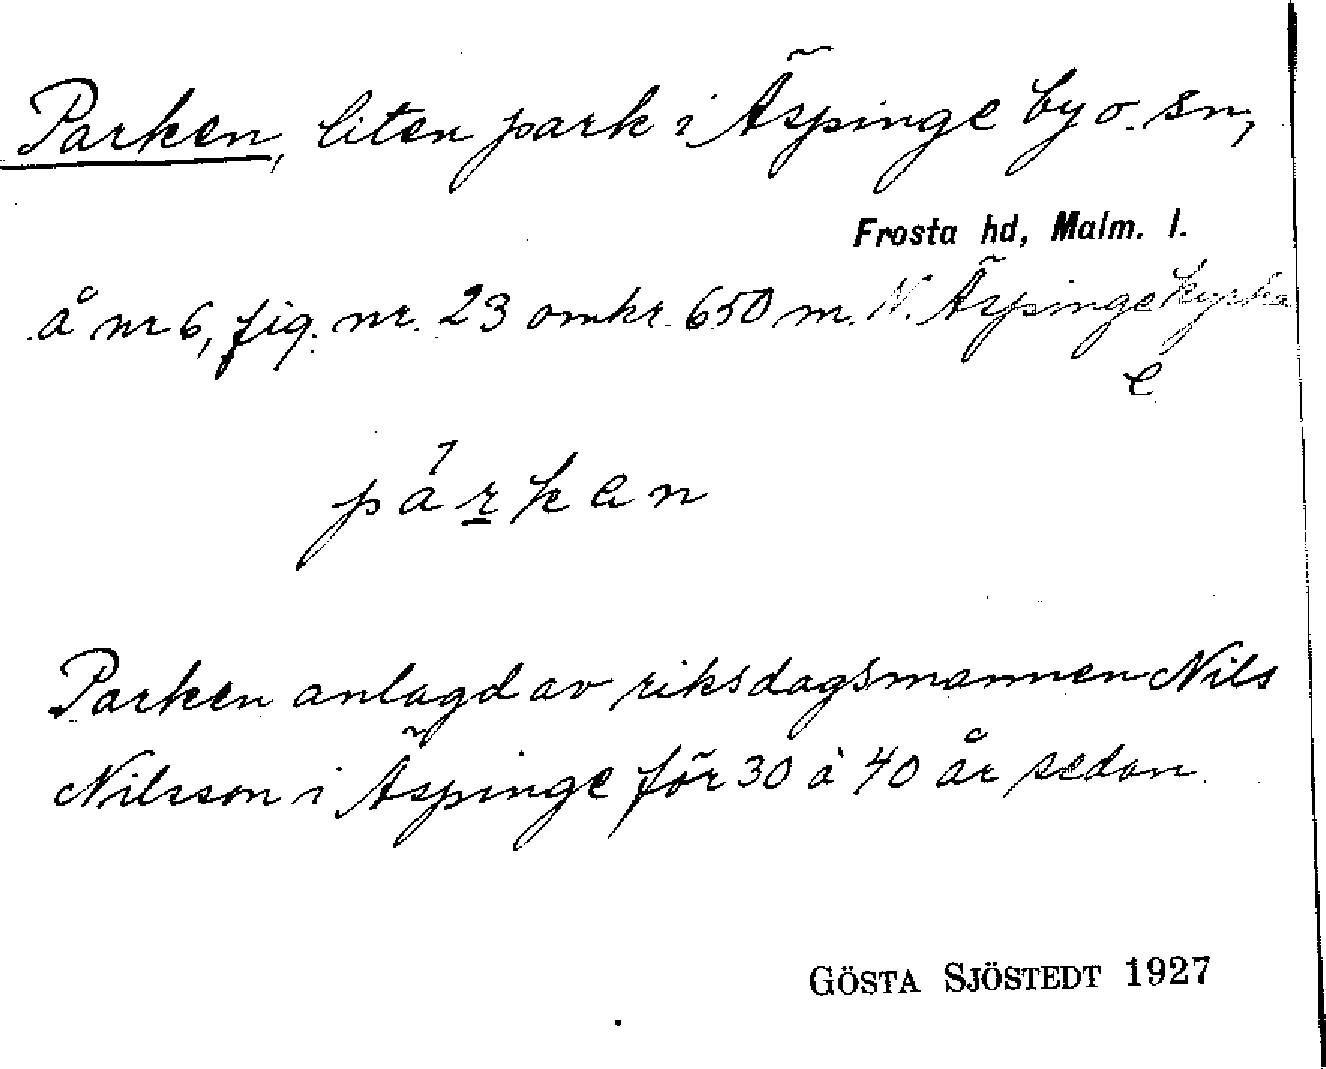 Parken, liten park i Äspinge by o. sn,
Frosta hd, Malm. l.
å nr 6, fig. nr. 23 omkr. 650 m. N. Äspinge kyrka
e
párken
Parken anlagd av riksdagsmannen Nils
Nilsson i Äspinge för 30 à 40 år sedan.
GÖSTA SJÖSTEDT 1927